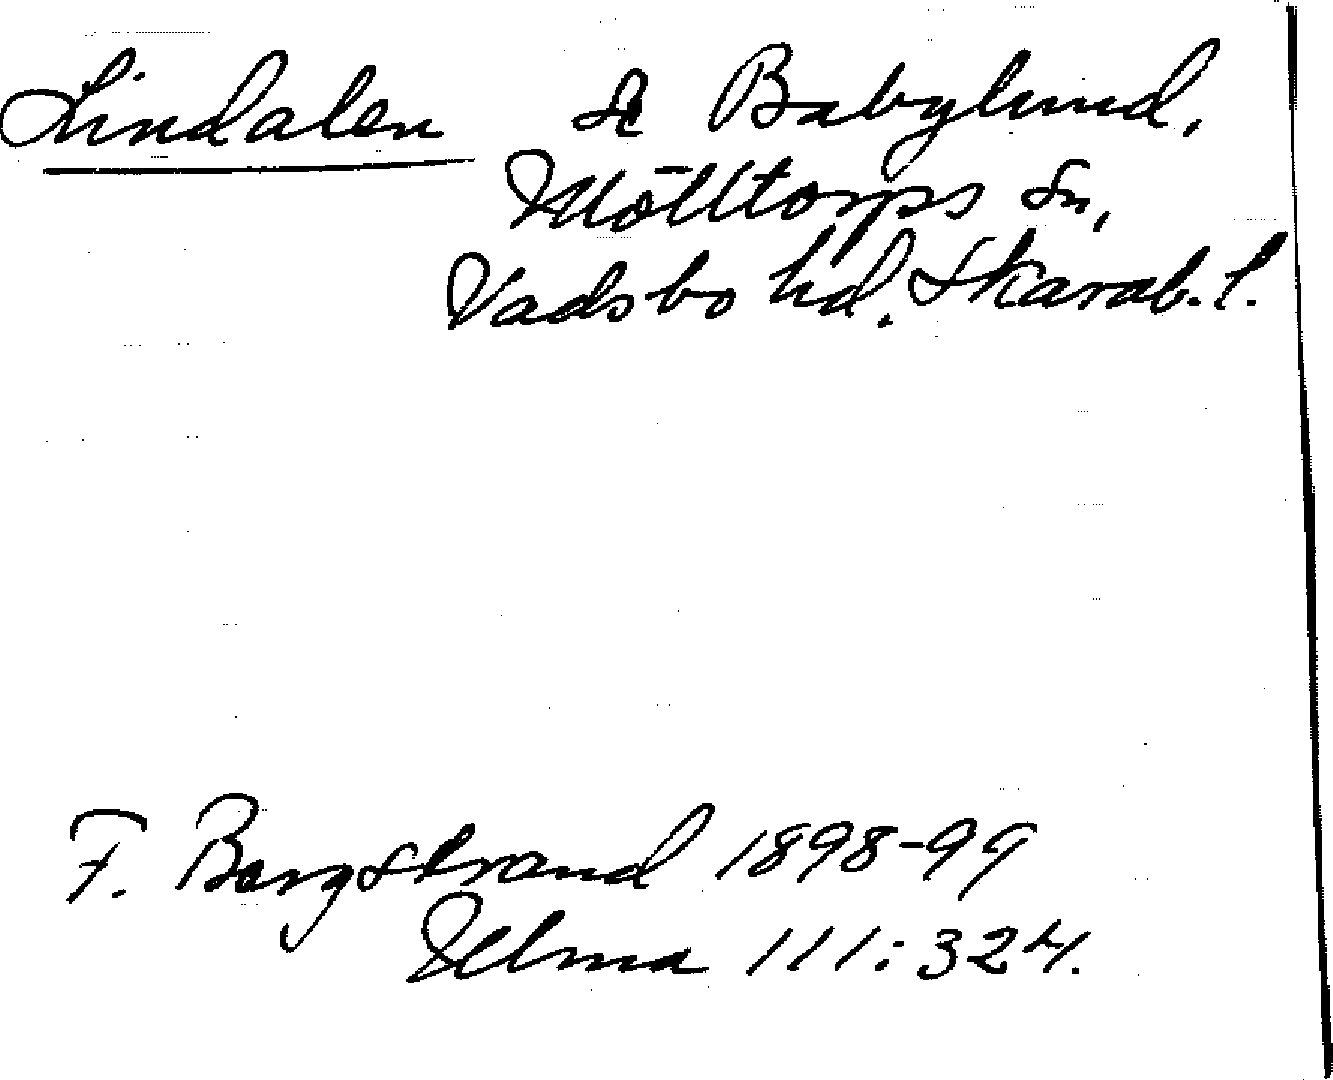 Lindalen se Babylund,
Mölltorps sn,
Vadsbo hd. Skarab. l.
F. Bergstrand 1898-99
Ulma 111:324.